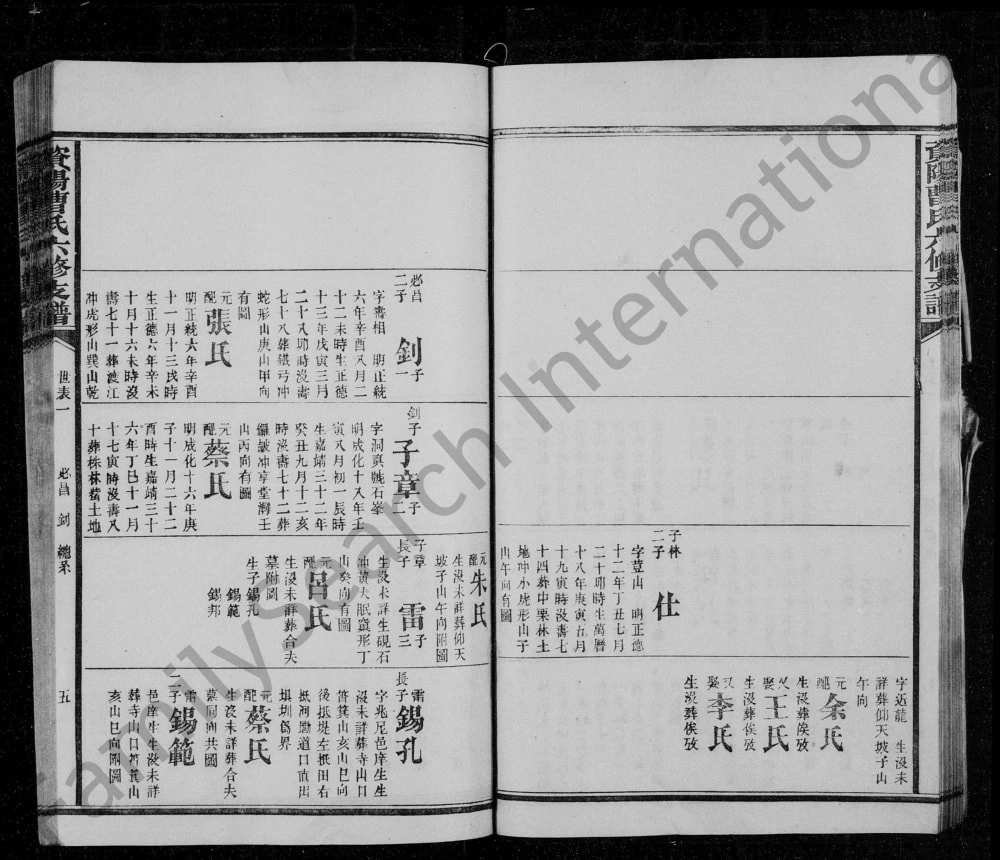 資陽曹氏六修支譜
字近龍 生没未
詳葬仰天坡子山
午向
元配
余氏
生没葬俟攷
又娶
王氏
生没葬俟攷
又娶
李氏
生没葬俟攷
子林
二子
仕
字荳山 明正德
十二年丁丑七月
二十卯時生萬曆
十八年庚寅五月
十九寅時没壽七
十四葬中栗林土
地冲小虎形山子
山午向有圖
元配
朱氏
生没未詳葬仰天
坡子山午向附圖
必昌
二子
釗
子一
字壽相 明正統
六年辛酉八月二
十二未時生正德
十三年戊寅三月
二十八卯時没壽
七十八葬鐵弓冲
蛇形山庚山甲向
有圖
元配
張氏
明正統六年辛酉
十一月十三戌時
生正德六年辛未
十月十六未時没
壽七十一葬渡江
冲虎形山巽山乾
釗子
子章
子二
字洞真號石峯
明成化十八年壬
寅八月初一辰時
生嘉靖三十二年
癸丑九月十二亥
時没壽七十二葬
冲享堂灣壬
山丙向有圖
元配
蔡氏
明成化十六年庚
子十一月二十二
酉時生嘉靖三十
六年丁巳十一月
十七寅時没壽八
十葬株林土地
子章
長子
雷
子三
生没未詳生硯石
冲黃犬眠窩形丁
山癸向有圖
元配
呂氏
生没未詳葬合夫
墓附圖
生子錫孔
錫範
錫邦
雷
長子
錫孔
字兆尼邑庠生生
没未詳葬寺山口
筲箕山亥山巳向
後抵堤左抵田右
抵河墈道口直出
堪圳為界
元配
蔡氏
生没未詳葬合夫
墓同向共圖
雷
二子
錫範
邑庠生生没未詳
葬寺山口筲箕山
亥山巳向附圖
資陽曹氏六修支譜
世表一
必昌
釗
總系
五
FamilySearch International